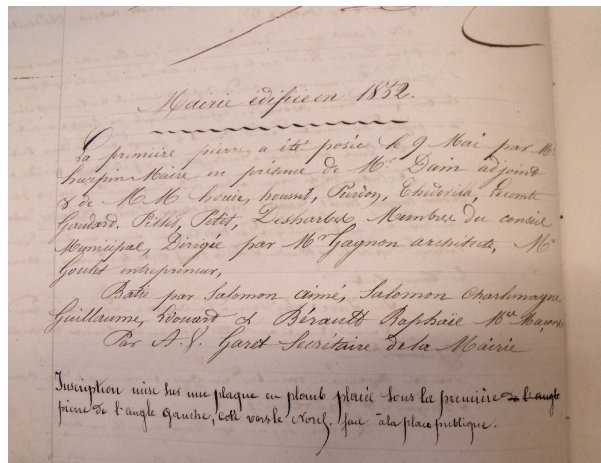 Mairie édifiée en 1852.
La première pierre a été posée le 9 Mai par Mr
hurpin Maire en présence de Mr Dain adjoint
& de M M houix, housset, Thiderica, Lecomte
Goudard, Pillet, Petit, Desharbes, Membres du conseil
Municipal, Dirigée par Mr Gagnon architecte, Mr
Goulet entrepreneur,
Batie par Salomon aimé, Salomon Charlemagne
Guillaume, Edouard & Bérault Raphaël Mes Maçons
Par A. V. Garet Secrétaire de la Mairie
Inscription mise sur une plaque en plomb placée sous la première de l'angle
pierre de l'angle gauche, coté vers le Nord, face à la place publique.